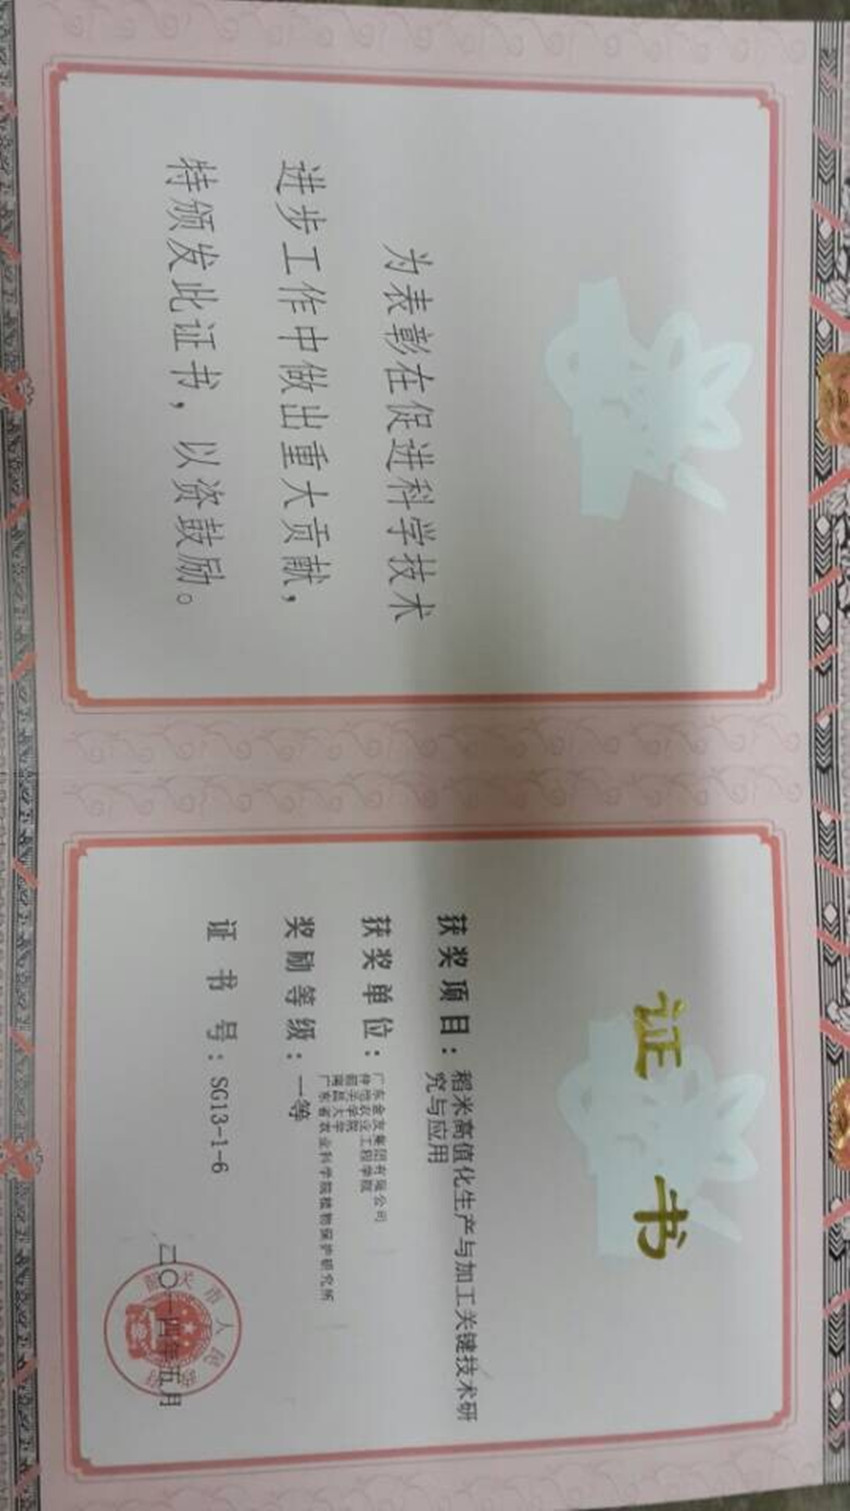 为表彰在促进科学技术
进步工作中做出重大贡献，
特颁发此证书，以资鼓励。
证书
获奖项目：稻米高值化生产与加工关键技术研
究与应用
获奖单位：广东金友集团有限公司
仲恺农业工程学院
韶关学院
南昌大学
广东省农业科学院植物保护研究所
奖励等级：一等
证书号：SG13-1-6
韶关市人民政府
二〇一四年五月